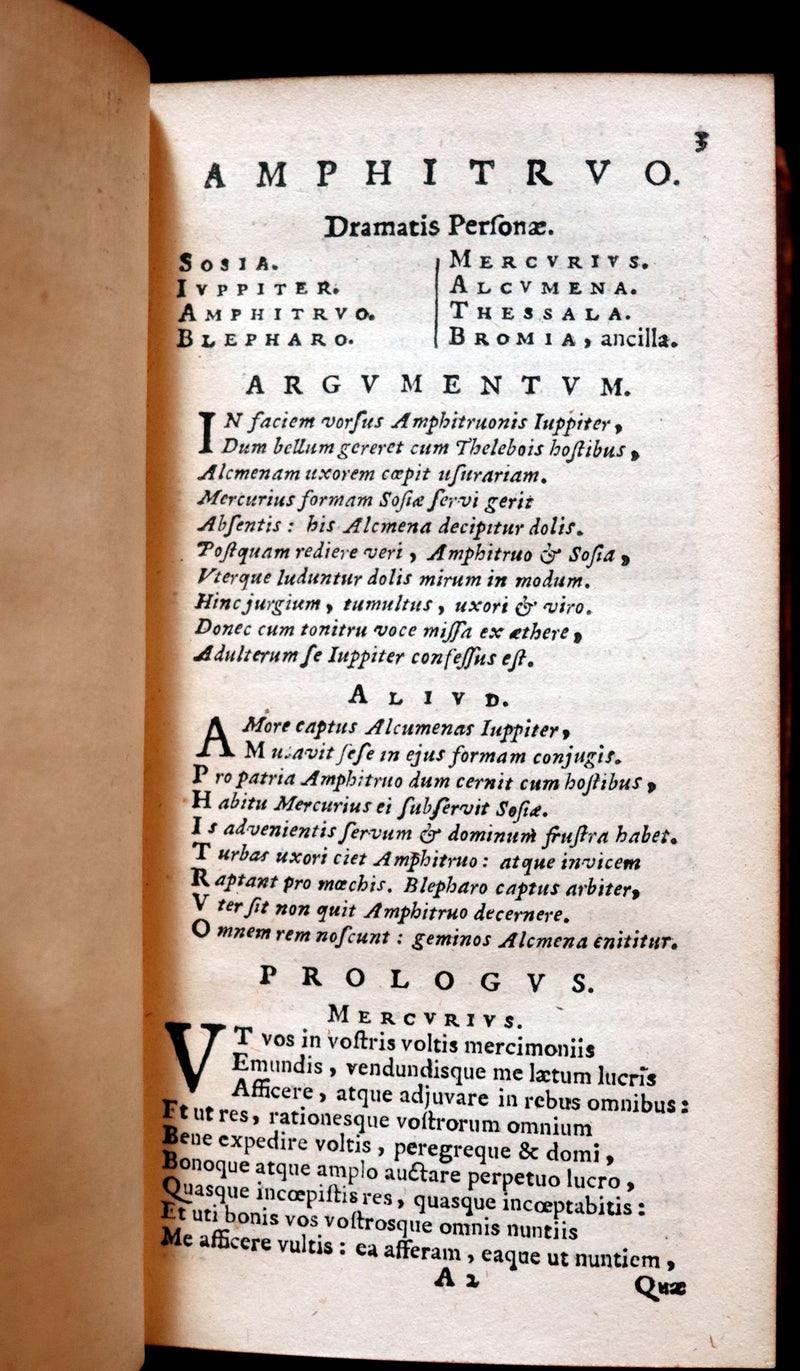 3
AMPHITRVO.
Dramatis Perſonæ.
SOSIA.
IVPPITER.
AMPHITRVO.
BLEPHARO.
MERCVRIVS.
ALCVMENA.
THESSALA.
BROMIA, ancilla.
ARGVMENTVM.
IN faciem vorſus Amphitruonis Iuppiter,
Dum bellum gereret cum Thelebois hoſtibus,
Alcmenam uxorem cœpit uſurariam.
Mercurius formam Soſiæ ſervi gerit
Abſentis: his Alcmena decipitur dolis.
Poſtquam rediere veri, Amphitruo & Soſia,
Vterque luduntur dolis mirum in modum.
Hinc jurgium, tumultus, uxori & viro.
Donec cum tonitru voce miſſa ex æthere,
Adulterum ſe Iuppiter confeſſus eſt.
ALIVD.
AMore captus Alcumenas Iuppiter,
Mutavit ſeſe in ejus formam conjugis.
Pro patria Amphitruo dum cernit cum hoſtibus,
Habitu Mercurius ei ſubſervit Soſiæ.
Is advenientis ſervum & dominum fruſtra habet.
Turbas uxori ciet Amphitruo: atque invicem
Raptant pro mœchis. Blepharo captus arbiter,
Vter ſit non quit Amphitruo decernere.
Omnem rem noſcunt: geminos Alcmena enititur.
PROLOGVS.
MERCVRIVS.
VT vos in voſtris voltis mercimoniis
Emundis, vendundisque me lætum lucris
Afficere, atque adjuvare in rebus omnibus:
Et ut res, rationesque voſtrorum omnium
Bene expedire voltis, peregreque & domi,
Bonoque atque amplo auctare perpetuo lucro,
Quasque incœpiſtis res, quasque incœptabitis:
Et uti bonis vos voſtrosque omnis nuntiis
Me afficere vultis: ea afferam, eaque ut nuntiem,
A 2
Quæ